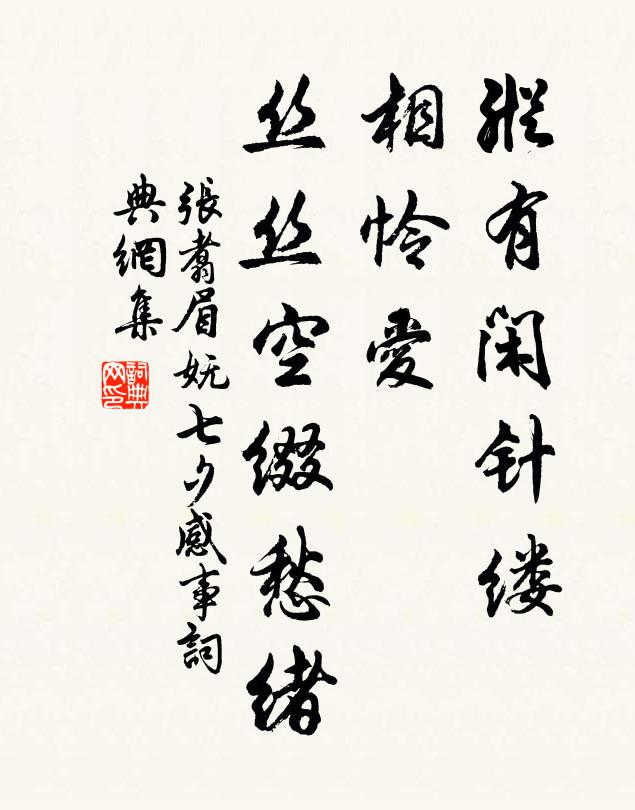 纵有闲针缕
相怜爱
丝丝空缀愁绪
張翥眉妩七夕感事詞
典網集
詞典网印